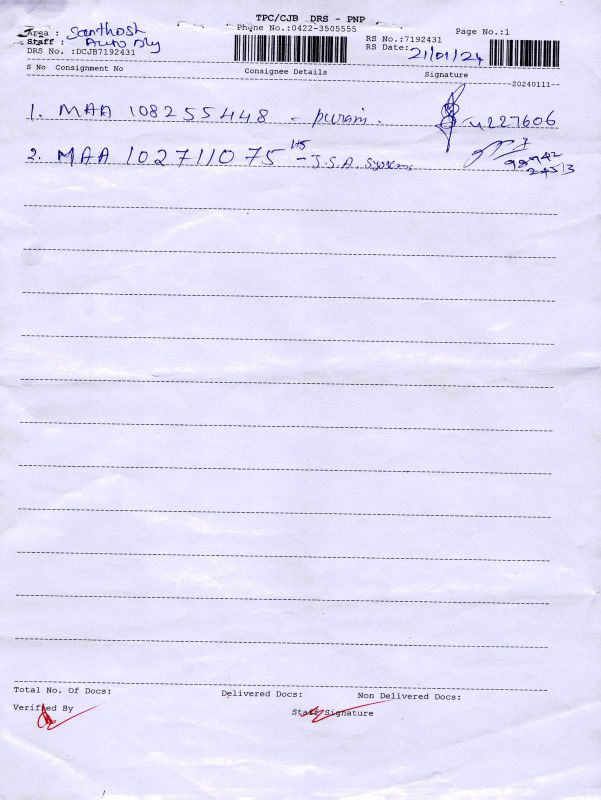 TPC/CJB DRS - PNP
Area : Santhosh
Phone No.:0422-3505555
RS No.:7192431
Page No.:1
Staff : Auto Dly
RS Date: 21/01/24
DRS No. :DCJB7192431
S No Consignment No
Consignee Details
Signature
20240111
1. MAA 108255448 - puram.
227606
2. MAA 102711075 - J.S.A. Systems
98742
24513
Total No. Of Docs:
Delivered Docs:
Non Delivered Docs:
Verified By
Staff Signature